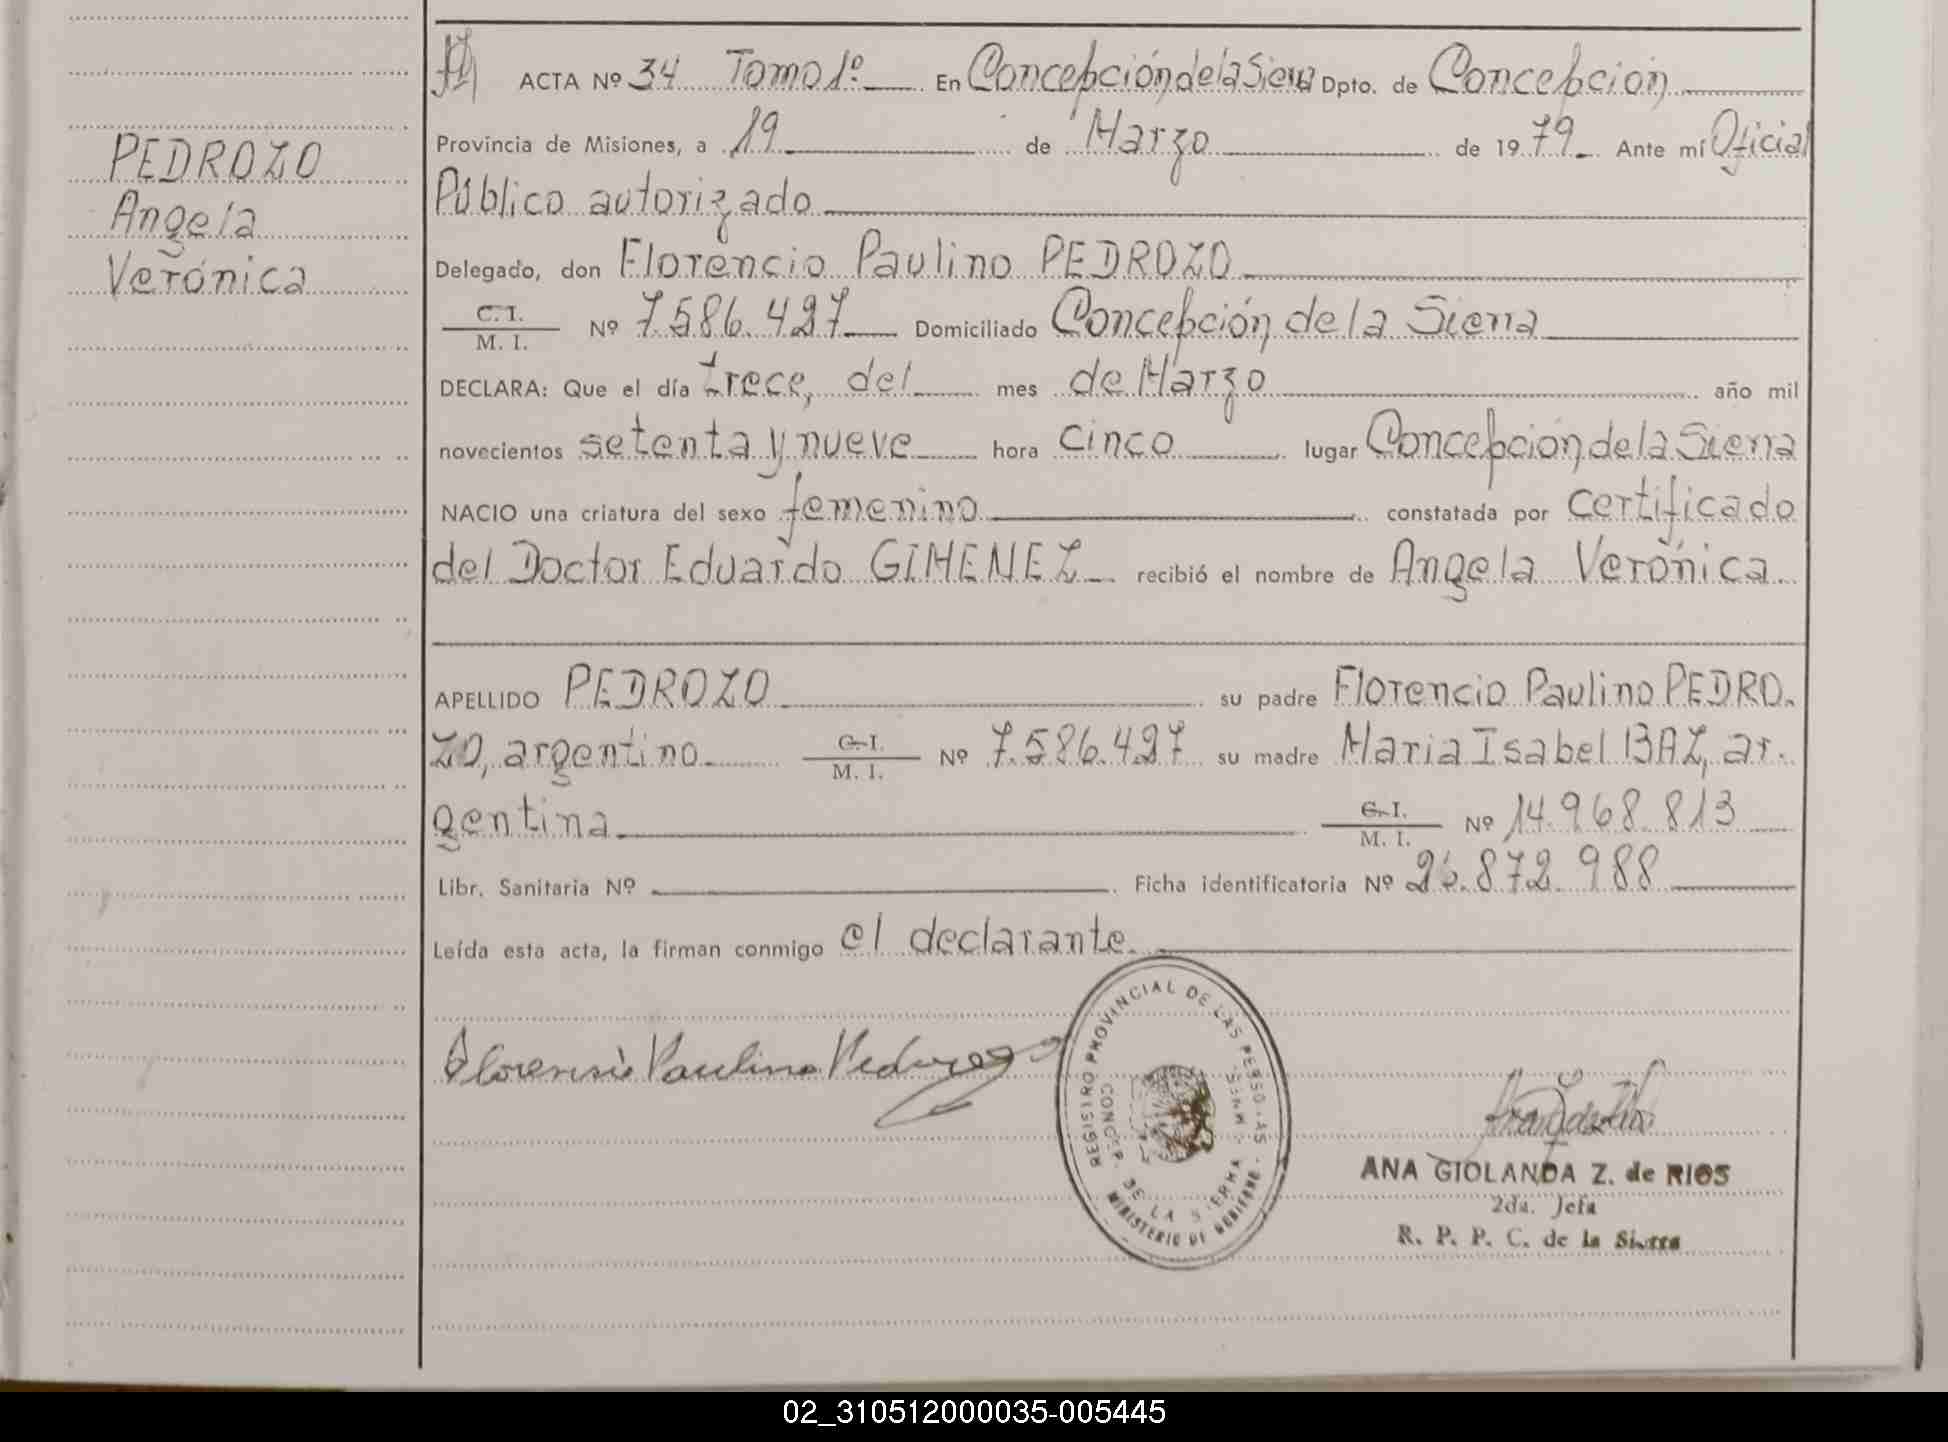 PEDROZO
Angela
Verónica
ACTA Nº 34 Tomo 1º En Concepción de la Sierra Dpto. de Concepción
Provincia de Misiones, a 19 de Marzo de 1979 Ante mí Oficial
Público autorizado
Delegado, don Florencio Paulino PEDROZO
C. I.
M. I. Nº 7.586.427 Domiciliado Concepción de la Sierra
DECLARA: Que el día trece, del mes de Marzo año mil
novecientos setenta y nueve hora cinco lugar Concepción de la Sierra
NACIO una criatura del sexo femenino constatada por certificado
del Doctor Eduardo GIMENEZ recibió el nombre de Angela Verónica
APELLIDO PEDROZO su padre Florencio Paulino PEDRO-
ZO, argentino C. I.
M. I. Nº 7.586.427 su madre Maria Isabel BAZ, ar-
gentina C. I.
M. I. Nº 14.968.813
Libr. Sanitaria Nº Ficha identificatoria Nº 26.872.988
Leída esta acta, la firman conmigo el declarante.
Paulino
REGISTRO PROVINCIAL DE LAS PERSONAS
CONCEP. DE LA SIERRA
MINISTERIO DE GOBIERNO
ANA GIOLANDA Z. de RIOS
2da. Jefa
R. P. P. C. de la Sierra
02_310512000035-005445